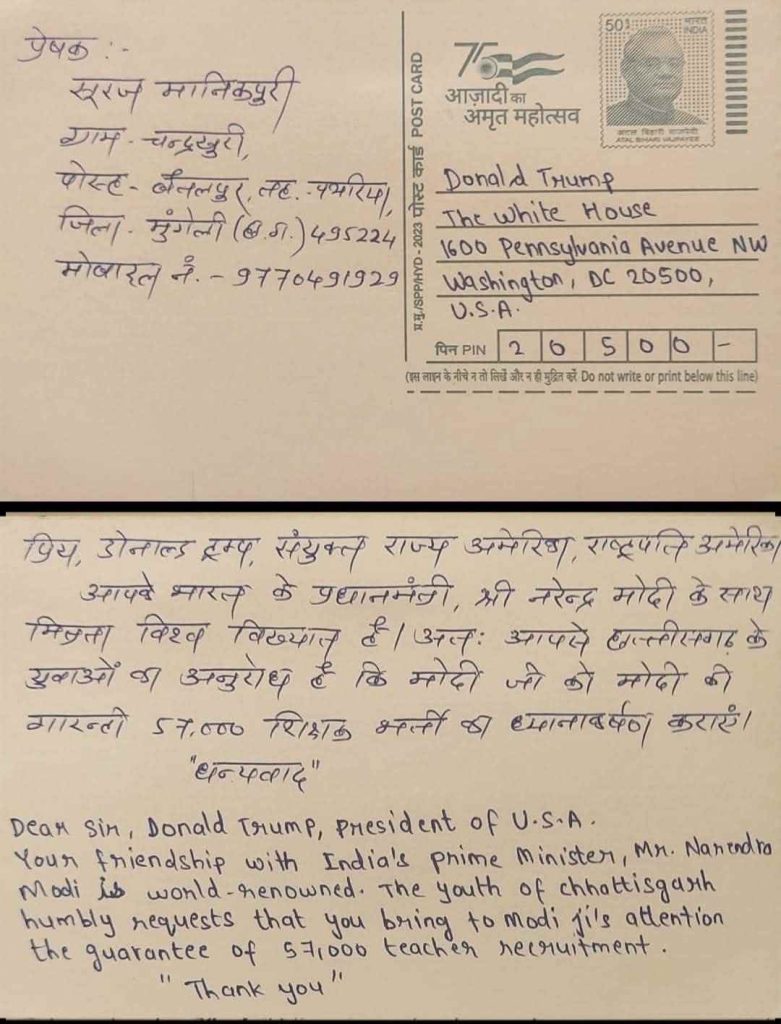 प्रेषक :-
सूरज मानिकपुरी
ग्राम - चन्द्रखुरी,
पोस्ट- बैतलपुर, तह. पथरिया,
जिला - मुंगेली (छ.ग.) 495224
मोबाइल नं. - 9770491929
प्र.मु./SPP/HYD - 2023 पोस्ट कार्ड POST CARD
75
आज़ादी का
अमृत महोत्सव
50
भारत
INDIA
अटल बिहारी वाजपेयी
ATAL BIHARI VAJPAYEE
Donald Trump
The White House
1600 Pennsylvania Avenue NW
Washington, DC 20500,
U.S.A.
पिन PIN 2 0 5 0 0 -
(इस लाइन के नीचे न तो लिखें और न ही मुद्रित करें Do not write or print below this line)
प्रिय, डोनाल्ड ट्रम्प, संयुक्त राज्य अमेरिका, राष्ट्रपति अमेरिका
आपके भारत के प्रधानमंत्री, श्री नरेन्द्र मोदी के साथ
मित्रता विश्व विख्यात है। अतः आपसे छत्तीसगढ़ के
युवाओं का अनुरोध है कि मोदी जी को मोदी की
गारन्टी 57,000 शिक्षक भर्ती का ध्यानाकर्षण कराएं।
"धन्यवाद"
Dear sir, Donald Trump, president of U.S.A.
Your friendship with India's prime Minister, Mr. Narendra
Modi is world-renowned. The youth of chhattisgarh
humbly requests that you bring to Modi ji's attention
the guarantee of 57,000 teacher recruitment.
"Thank you"